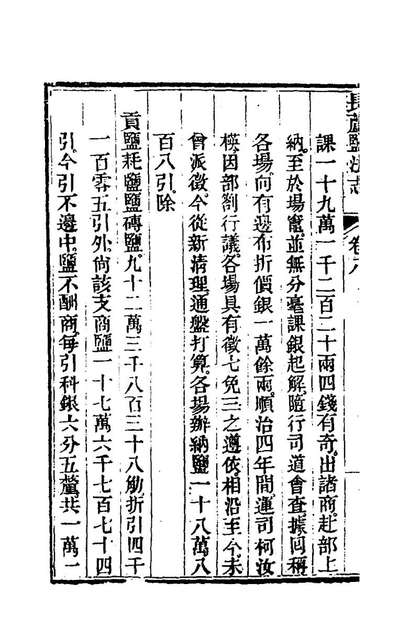 長蘆鹽法志 卷八
課一十九萬一千二百二十兩四錢有奇出諸商赴部上
納至於場竈並無分毫課銀起解隨行司道會查據囘稱
各場向有邊布折價銀一萬餘兩順治四年間運司柯汝
模因部劄行議各場具有徵七免三之遵依相沿至今未
曾派徵今從新清理通盤打算各場辦納鹽一十八萬八
百八引除
貢鹽耗鹽鹽磚鹽九十二萬三千八百三十八觔折引四千
一百零五引外尚該支商鹽一十七萬六千七百七十四
引今引不邊中鹽不酬商每引科銀六分五釐共一萬一